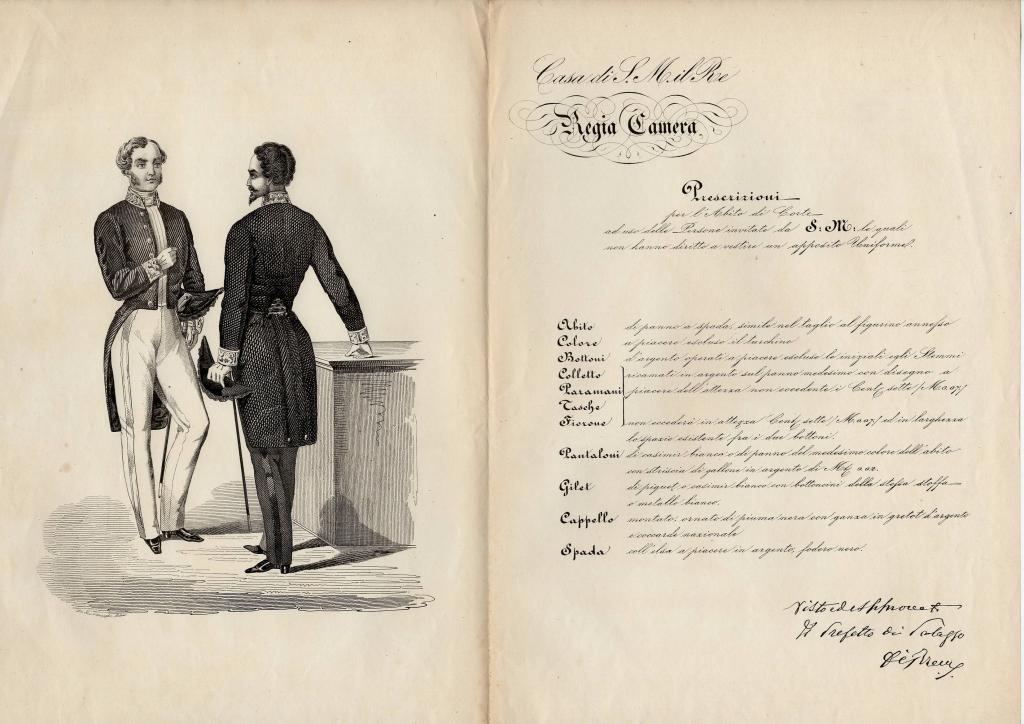 Casa di S. M. il Re
Regia Camera
Prescrizioni
per l'Abito di Corte
ad uso delle Persone invitate da S: M: le quali
non hanno diritto a vestire un apposito Uniforme.
Abito di panno a spada, simile nel taglio al figurino annesso
Colore a piacere escluso il turchino
Bottoni d'argento operati a piacere escluse le iniziali egli Stemmi
Colletto ricamati in argento sul panno medesimo con disegno a
Paramani piacere dell'altezza non eccedente i Cent. sette /M. 0.07/
Tasche
Fiorone non eccederà in altezza Cent. sette /M. 0.07/ ed in larghezza
lo spazio esistente fra i due bottoni.
Pantaloni di casimir bianco o di panno del medesimo colore dell'abito
con striscia di gallone in argento di M. 0.02.
Gilet di piquet o casimir bianco con bottoncini della stessa stoffa
o metallo bianco.
Cappello montato, ornato di piuma nera con ganza in gretot d'argento
e coccarda nazionale
Spada coll'elsa a piacere in argento, fodero nero.
Visto ed Approvato
Il Prefetto di Palazzo